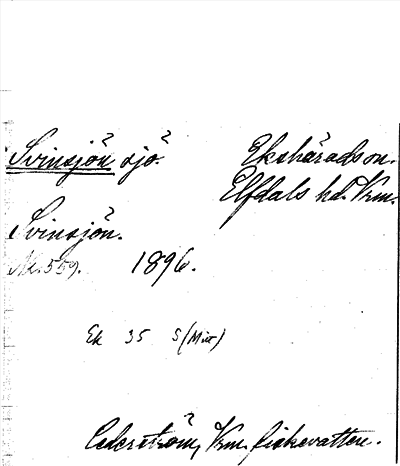 Svinsjön sjö. Ekshärads sn.
Elfdals hd. Vrm.
Svinsjön.
No. 559. 1896.
Ek 35 S (Mitt)
Cederström, Vrm. fiskevatten.